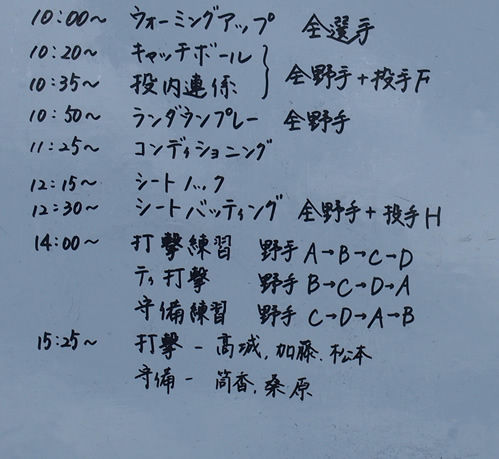 10:00~ ウォーミングアップ 全選手
10:20~ キャッチボール
10:35~ 投内連係 全野手+投手F
10:50~ ランダウンプレー 全野手
11:25~ コンディショニング
12:15~ シートノック
12:30~ シートバッティング 全野手+投手H
14:00~ 打撃練習 野手 A→B→C→D
ティ打撃 野手 B→C→D→A
守備練習 野手 C→D→A→B
15:25~ 打撃-高城,加藤.松本
守備-筒香,桑原